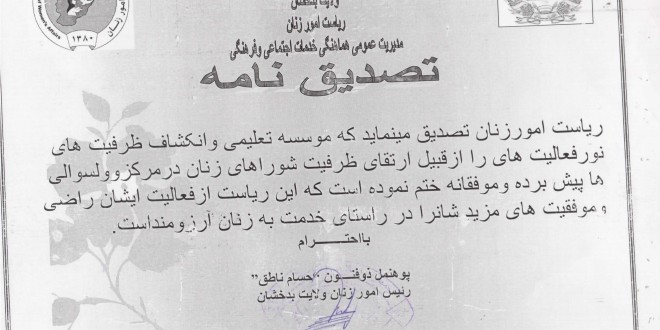 ولایت بدخشان
ریاست امور زنان
مدیریت عمومی هماهنگی خدمات اجتماعی وفرهنگی
تصدیق نامه
ریاست امورزنان تصدیق مینماید که موسسه تعلیمی وانکشاف ظرفیت های
نورفعالیت های را ازقبیل ارتقای ظرفیت شوراهای زنان درمرکزوولسوالی
ها پیش برده وموفقانه ختم نموده است که این ریاست ازفعالیت ایشان راضی
وموفقیت های مزید شانرا در راستای خدمت به زنان آرزومنداست.
بااحترام
پوهنمل ذوفنون "حسام ناطق"
رئیس امور زنان ولایت بدخشان
امور زنان
۱۳۸۰